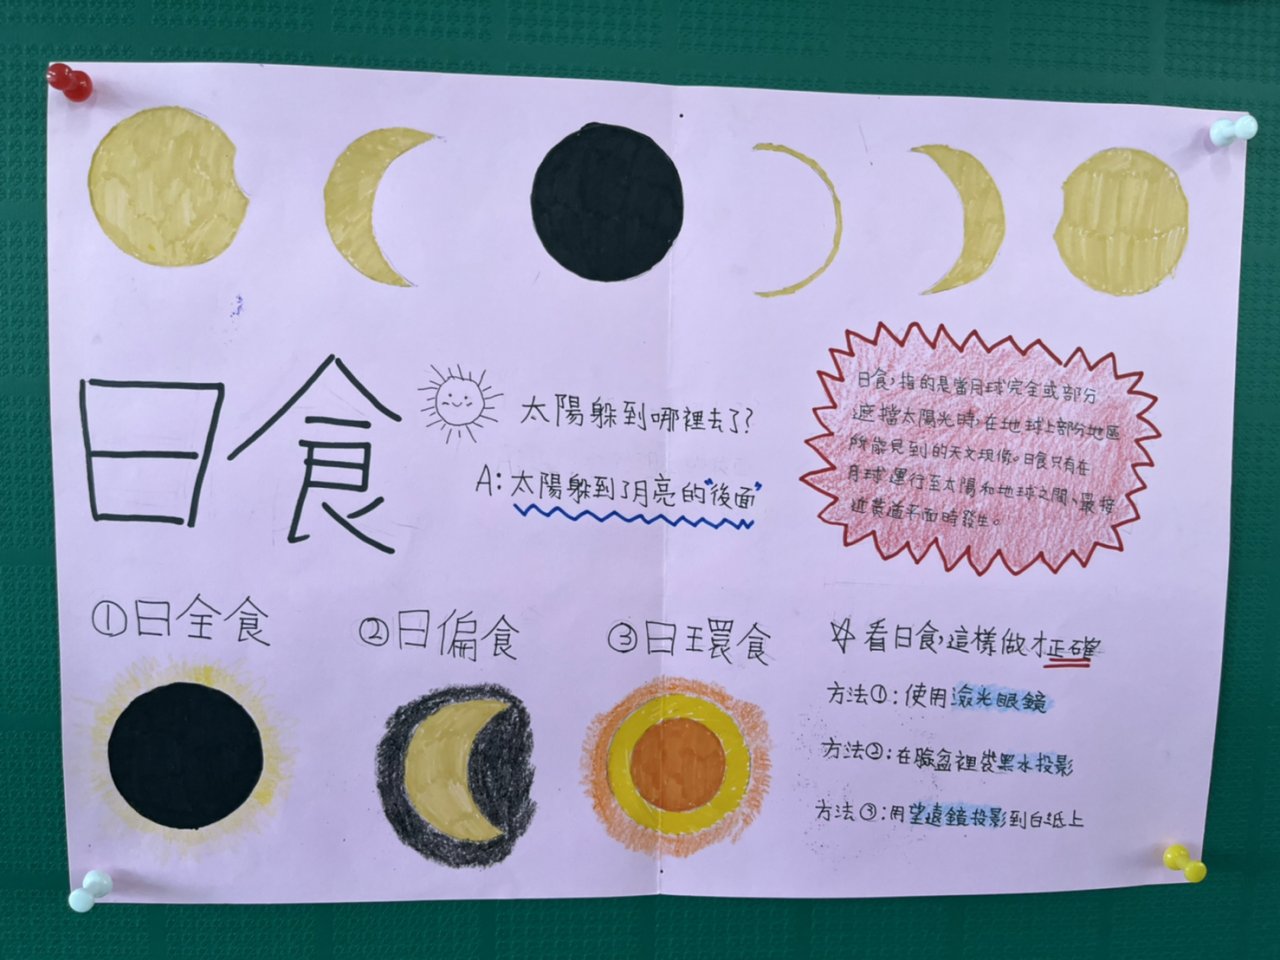 日食
太陽躲到哪裡去了?
A:太陽躲到了月亮的"後面"
日食,指的是當月球完全或部分
遮擋太陽光時,在地球上部份地區
所能見到的天文現像。日食只有在
月球運行至太陽和地球之間、最接
近黃道平面時發生。
①日全食
②日偏食
③日環食
看日食,這樣做才正確
方法①:使用濾光眼鏡
方法②:在臉盆裡裝黑水投影
方法③:用望遠鏡投影到白紙上